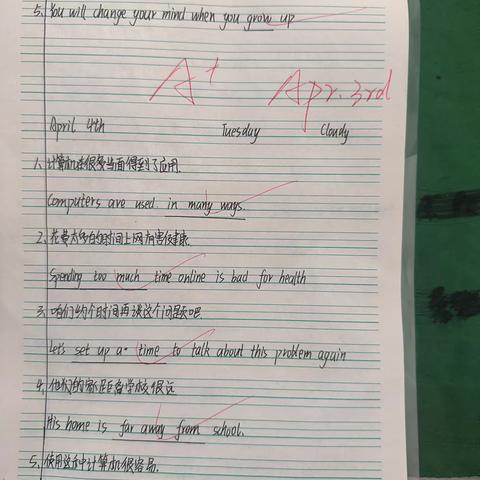 5. You will change your mind when you grow up
A+ Apr. 3rd
April 4th Tuesday Cloudy
1. 计算机在很多方面得到了应用.
Computers are used in many ways.
2. 花费太多的时间上网有害健康.
Spending too much time online is bad for health
3. 咱们约个时间再谈这个问题吧
Let's set up a time to talk about this problem again
4. 他们的家距离学校很远
His home is far away from school.
5. 使用这种计算机很容易.